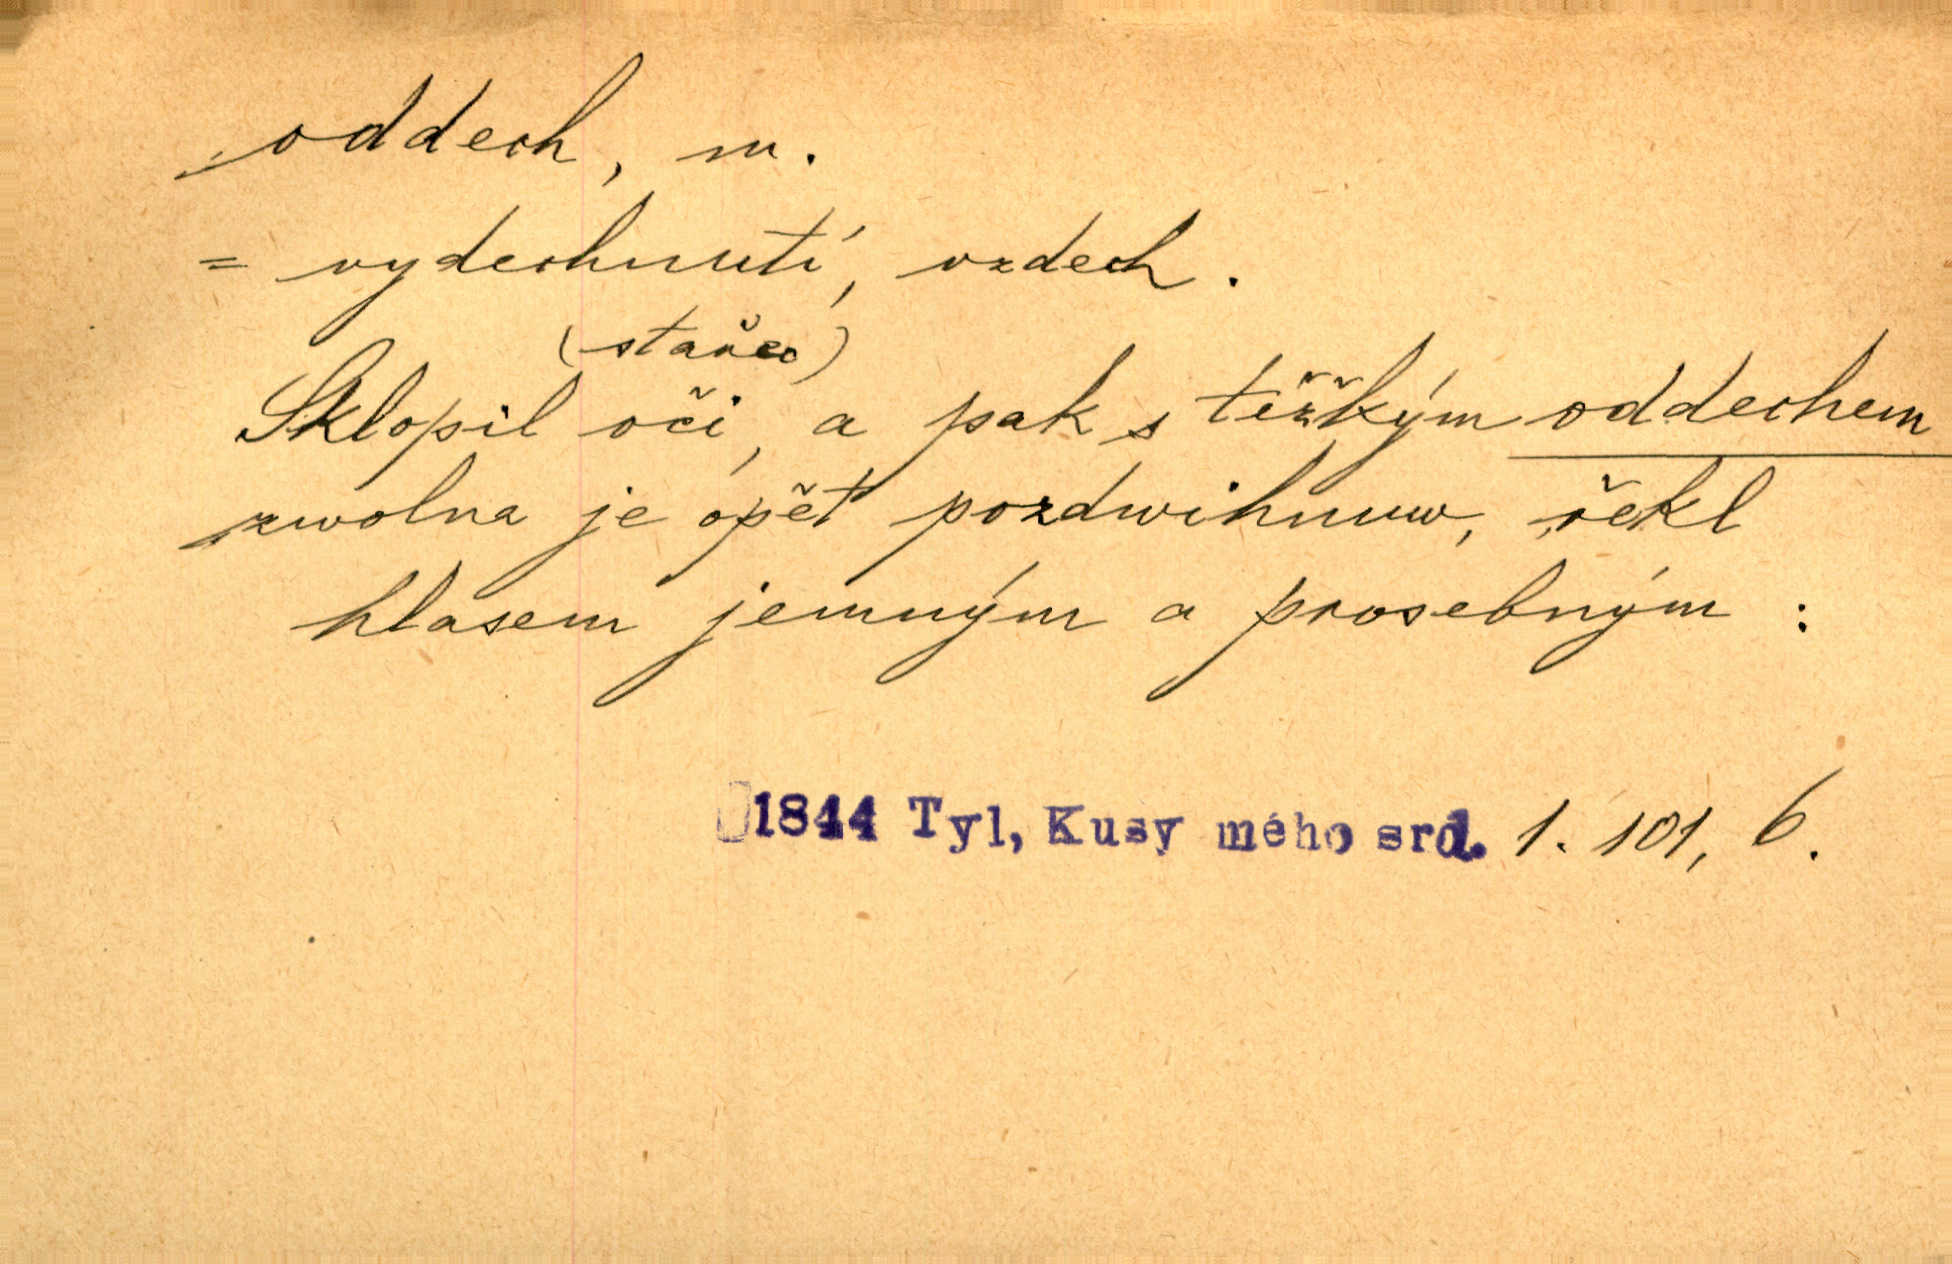 oddech, m.
= vydechnutí, vzdech.
(stařec)
Sklopil oči, a pak s těžkým oddechem
zwolna je opět pozdwihnuw, řekl
hlasem jemným a prosebným :
1844 Tyl, Kusy mého srd. 1. 101, 6.